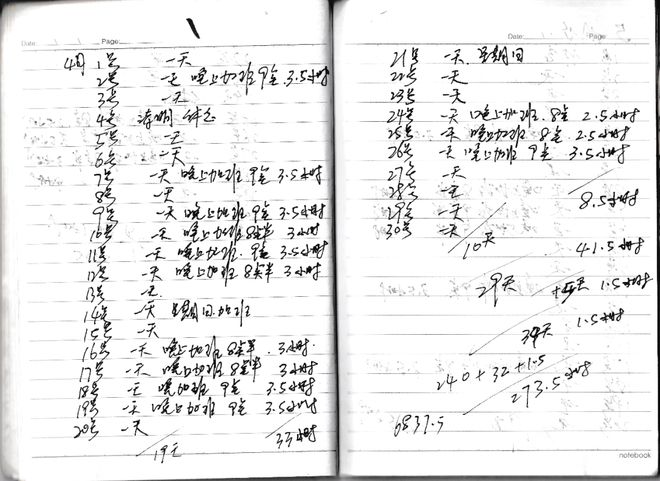 Date: Page:
4月 1号 一天
2号 一天 晚上加班 9点 3.5小时
3号 一天
4号 清明 休息
5号 一天
6号 一天
7号 一天 晚上加班 9点 3.5小时
8号 一天
9号 一天 晚上加班 9点 3.5小时
10号 一天 晚上加班 8点半 3小时
11号 一天 晚上加班 9点 3.5小时
12号 一天 晚上加班 8点半 3小时
13号 一天
14号 一天 星期日加班
15号 一天
16号 一天 晚上加班 8点半 3小时
17号 一天 晚上加班 8点半 3小时
18号 一天 晚加班 9点 3.5小时
19号 一天 晚上加班 9点 3.5小时
20号 一天
19天 33小时
Date: Page:
21号 一天 星期日
22号 一天
23号 一天
24号 一天 晚上加班 8点 2.5小时
25号 一天 晚上加班 8点 2.5小时
26号 一天 晚上加班 9点 3.5小时
27号 一天
28号 一天
29号 一天 8.5小时
30号 一天
10天 41.5小时
29天 1.5小时
34天 1.5小时
240+32+1.5
273.5小时
6837.5
notebook